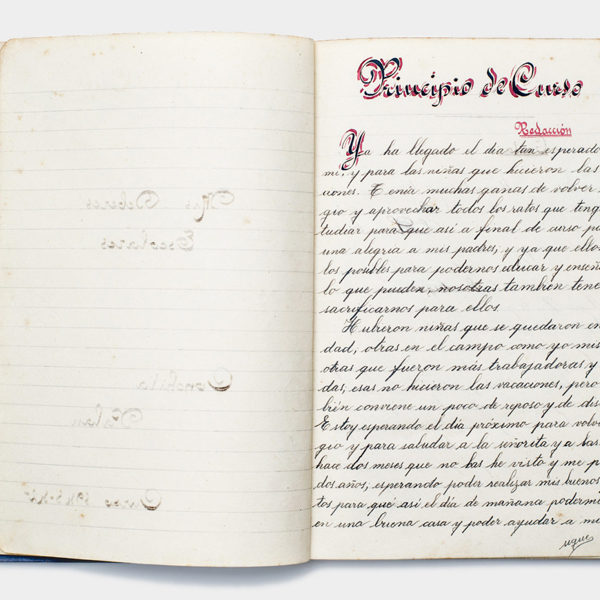 Mis Deberes
Escolares
Conchita
Curso
Principio de Curso
Redacción
Ya ha llegado el dia tan esperado
mi, y para las niñas que hicieron las
ciones. Tenia muchas ganas de volver
gio y aprovechar todos los ratos que teng
tudiar para que asi a final de curso p
una alegria a mis padres, y ya que ello
los posibles para podernos educar y enseñ
lo que pueden, nosotras tambien tene
sacrificarnos para ellos.
Hubieron niñas que se quedaron en
dad, otras en el campo como yo mis
otras que fueron más trabajadoras y
das, esas no hicieron las vacaciones, pero
bién conviene un poco de reposo y de des
Estoy esperando el dia próximo para volv
gio y para saludar a la señorita y a las
hace dos meses que no las he visto y me p
dos años, esperando poder realizar mis buenos
tos para qué asi el dia de mañana poderm
en una buena casa y poder ayudar a mi
sigue